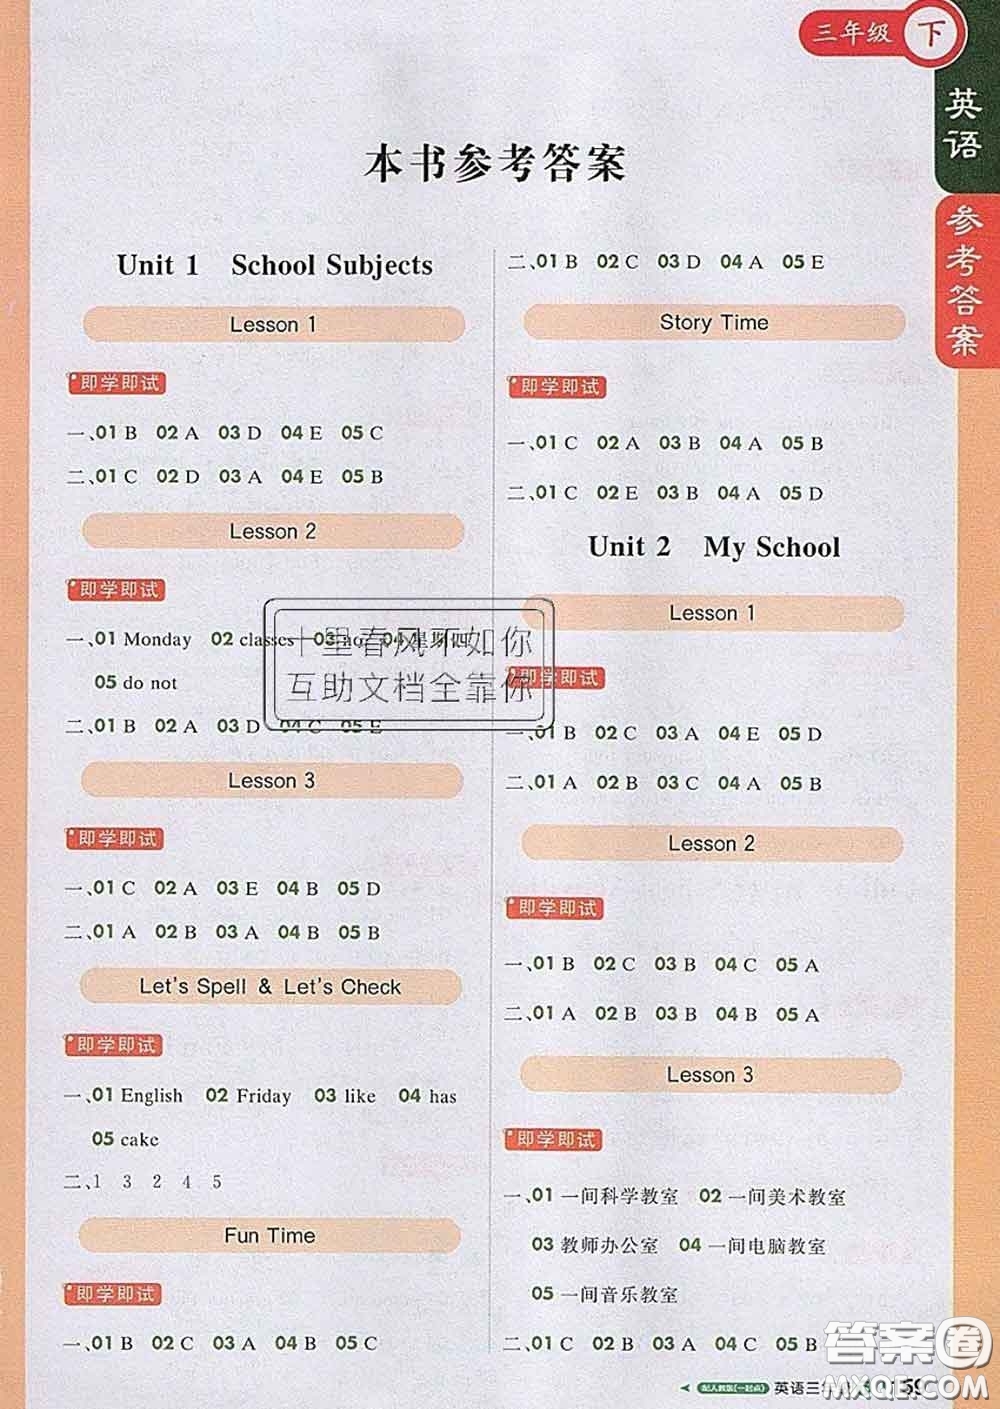 三年级 下
英语
参考答案
本书参考答案
Unit 1 School Subjects
Lesson 1
即学即试
一、01 B 02 A 03 D 04 E 05 C
二、01 C 02 D 03 A 04 E 05 B
Lesson 2
即学即试
一、01 Monday 02 classes 03 no 04 星期四
05 do not
二、01 B 02 A 03 D 04 C 05 E
Lesson 3
即学即试
一、01 C 02 A 03 E 04 B 05 D
二、01 A 02 B 03 A 04 B 05 B
Let's Spell & Let's Check
即学即试
一、01 English 02 Friday 03 like 04 has
05 cake
二、1 3 2 4 5
Fun Time
即学即试
一、01 B 02 C 03 A 04 B 05 C
二、01 B 02 C 03 D 04 A 05 E
Story Time
即学即试
一、01 C 02 A 03 B 04 A 05 B
二、01 C 02 E 03 B 04 A 05 D
Unit 2 My School
Lesson 1
即学即试
一、01 B 02 C 03 A 04 E 05 D
二、01 A 02 B 03 C 04 A 05 B
Lesson 2
即学即试
一、01 B 02 C 03 B 04 C 05 A
二、01 A 02 B 03 B 04 B 05 A
Lesson 3
即学即试
一、01 一间科学教室 02 一间美术教室
03 教师办公室 04 一间电脑教室
05 一间音乐教室
二、01 C 02 B 03 A 04 B
十里春风不如你
互助文档全靠你
配人教版(一起点) 英语三年
答案圈
MXQE.COM